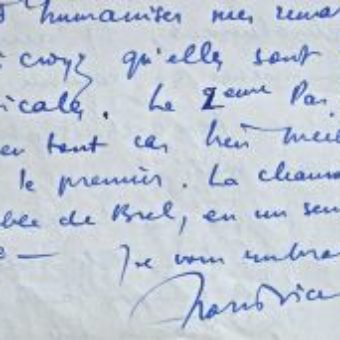 humaniser mes rema
croyz qu'elles sont
icales. La 2eme Par
en tout cas bien meil
le premier. La chans
de Brel, en un sen
— Je vous embra